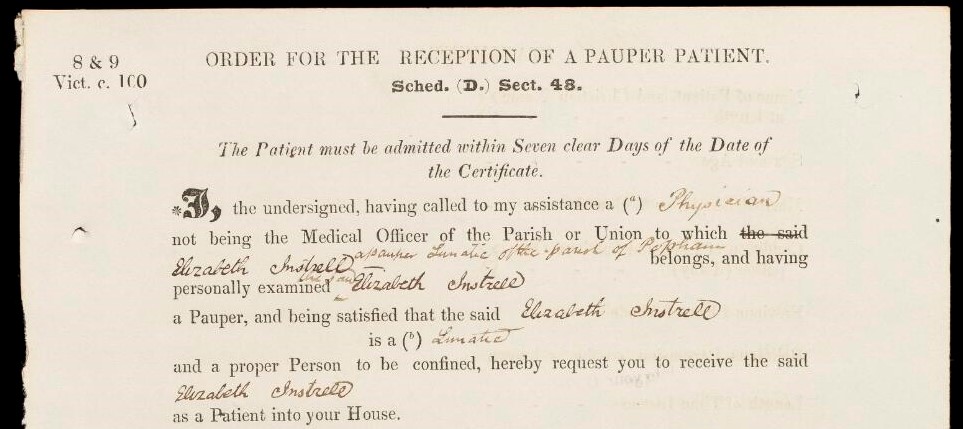 8 & 9
Vict. c. 100
ORDER FOR THE RECEPTION OF A PAUPER PATIENT.
Sched. (D.) Sect. 48.
The Patient must be admitted within Seven clear Days of the Date of
the Certificate.
*I, the undersigned, having called to my assistance a (a) Physician
not being the Medical Officer of the Parish or Union to which the said
a pauper Lunatic of the parish of Popham
Elizabeth Instrell belongs, and having
the said
personally examined Elizabeth Instrell
a Pauper, and being satisfied that the said Elizabeth Instrell
is a (b) Lunatic
and a proper Person to be confined, hereby request you to receive the said
Elizabeth Instrell
as a Patient into your House.